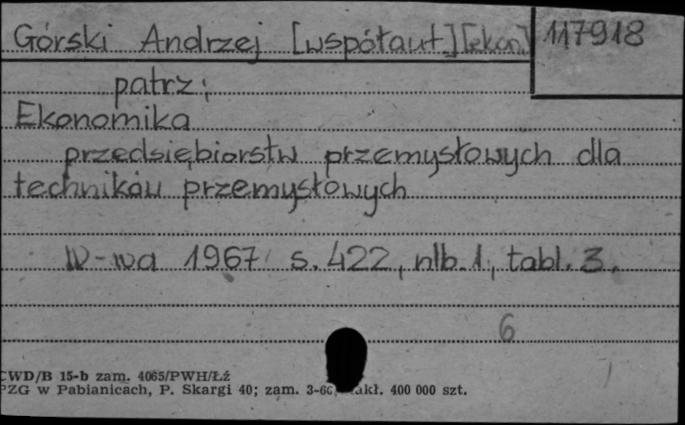 Górski Andrzej [współaut.] [ekon.] 117918
patrz:
Ekonomika
przedsiębiorstw przemysłowych dla
techników przemysłowych
W-wa 1967 s. 422, nlb. 1, tabl. 3.
6
CWD/B 15-b zam. 4065/PWH/Łź
PZG w Pabianicach, P. Skargi 40; zam. 400 000 szt.